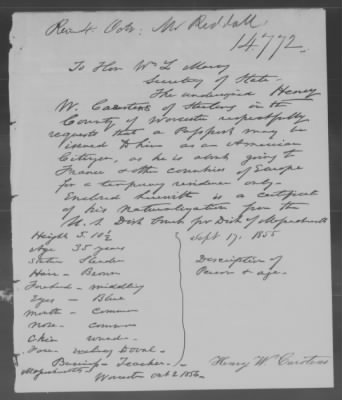 Rec 4. Octr. Mr Reddall
14772.
To Hon Wm L Marcy
Secretary of State -
The undersigned Henry
W. Carstens of Sterling in the
County of Worcester respectfully
requests that a Passport may be
issued to him as an American
Citizen, as he is about going to
France & other countries of Europe
for a temporary residence only -
Enclosed herewith is a certificate
of his naturalization from the
U. S. Dist Court for Dist of Massachusetts
Sept 17. 1855
Height 5. 10½
Age 35 years
Hair - Brown
Forehead - middling
Eyes - Blue
mouth - common
nose - common
Chin round -
Face Oval -
Business - Teacher -
Description of
Person & age -
Massachusetts
Worcester Oct 2 1856 -
Henry W Carstens